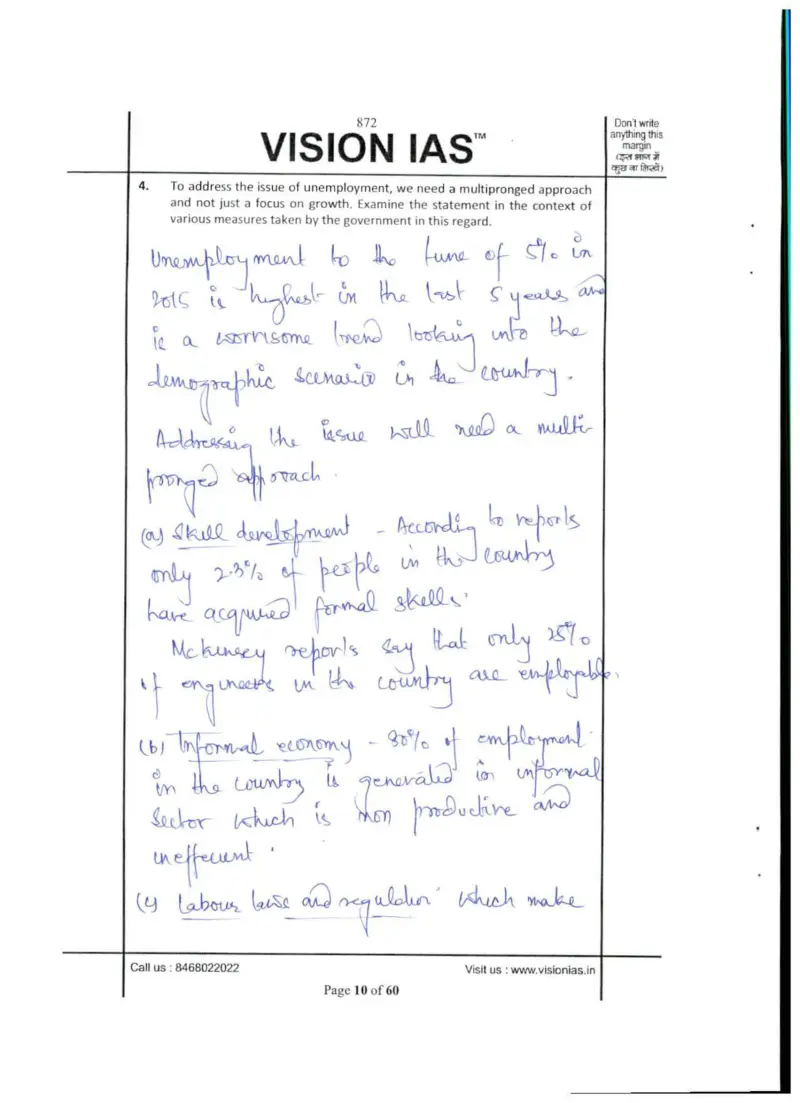 872
VISION IAS™
Don't write
anything this
margin
(इस भाग में
कुछ ना लिखें)
4. To address the issue of unemployment, we need a multipronged approach
and not just a focus on growth. Examine the statement in the context of
various measures taken by the government in this regard.
Unemployment to the tune of 5% in
2015 is highest in the last 5 years and
is a worrisome trend looking into the
demographic scenario in the country.
Addressing the issue will need a multi-
pronged approach.
(a) Skill development - According to reports
only 2.3% of people in the country
have acquired formal skills.
McKinsey reports say that only 25%
of engineers in the country are employable.
(b) Informal economy - 80% of employment
in the country is generated in informal
sector which is non productive and
inefficient.
(c) Labour laws and regulation which make
Call us : 8468022022
Visit us : www.visionias.in
Page 10 of 60